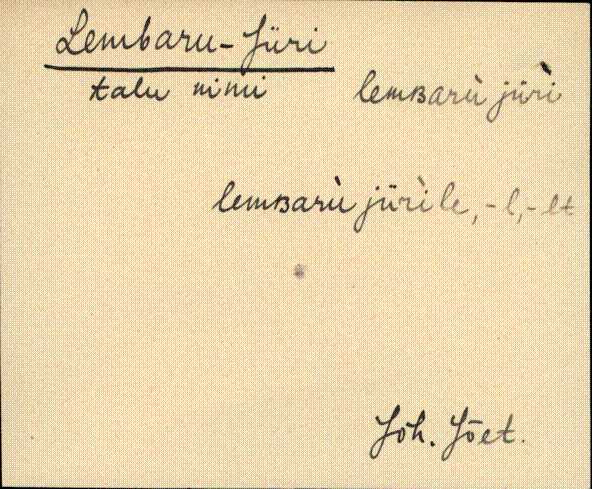 Lembaru-Jüri
talu nimi lemʙarù jüri̇̀
lemʙarù jürìle, -l, -lt
Joh. Jõet.